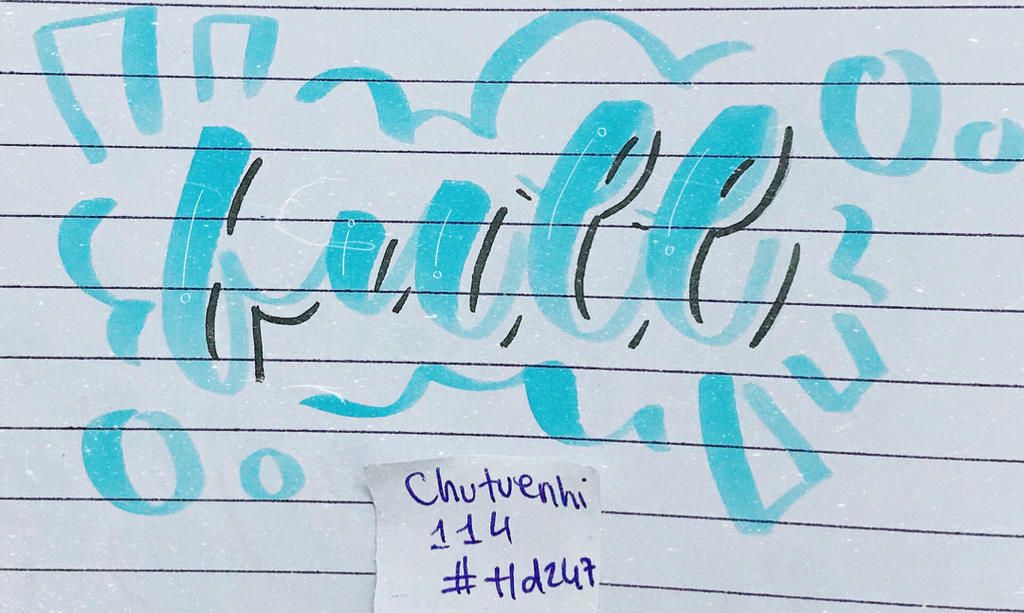 full
Chutuenhi
114
#Hd247